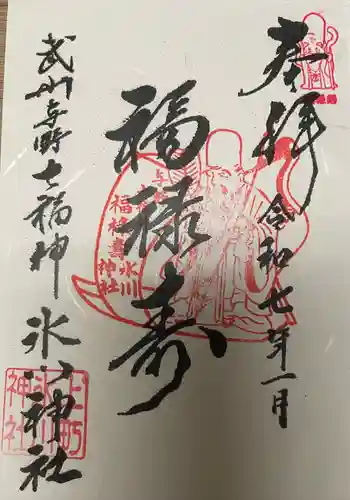 奉拝
令和七年一月
福禄寿
与野
福禄寿
氷川
神社
武州与野七福神
氷川神社
上町
氷川
神社